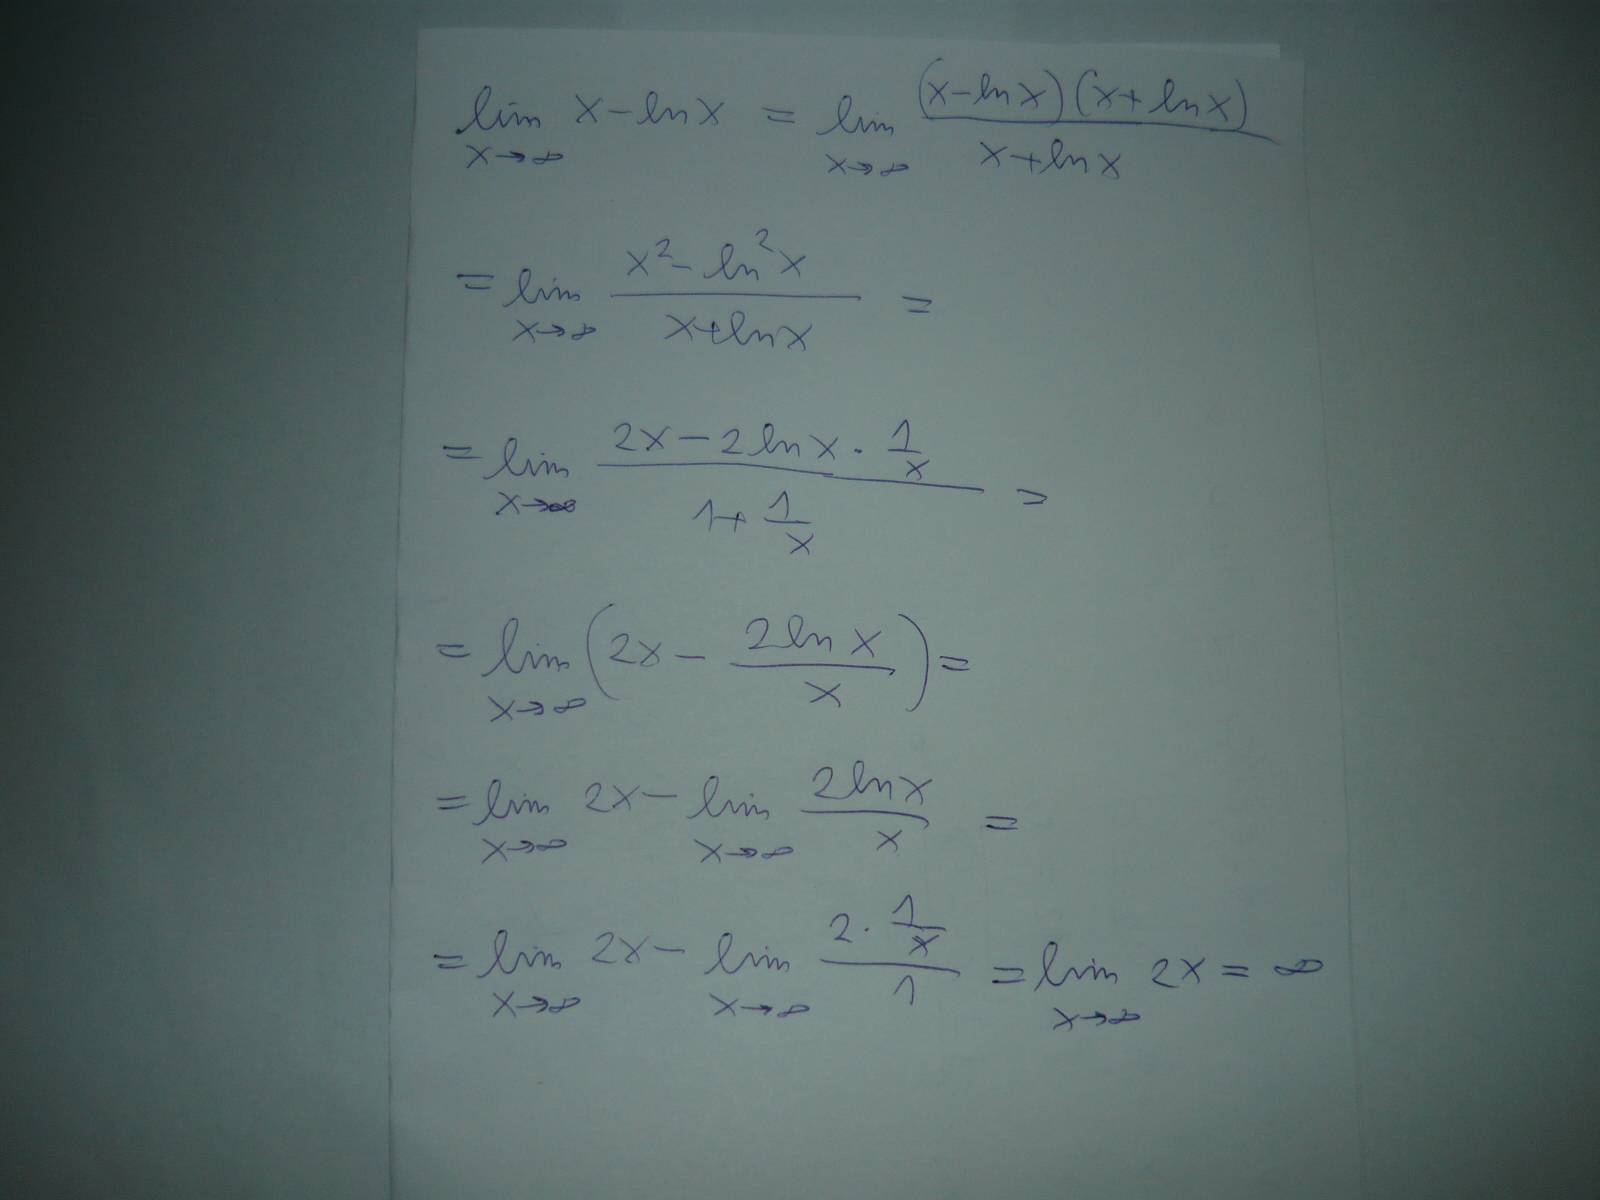 lim x→∞ x - ln x = lim x→∞ (x - ln x)(x + ln x) / x + ln x
= lim x→∞ x² - ln² x / x + ln x =
= lim x→∞ 2x - 2 ln x · 1/x / 1 + 1/x =
= lim x→∞ (2x - 2 ln x / x) =
= lim x→∞ 2x - lim x→∞ 2 ln x / x =
= lim x→∞ 2x - lim x→∞ 2 · 1/x / 1 = lim x→∞ 2x = ∞